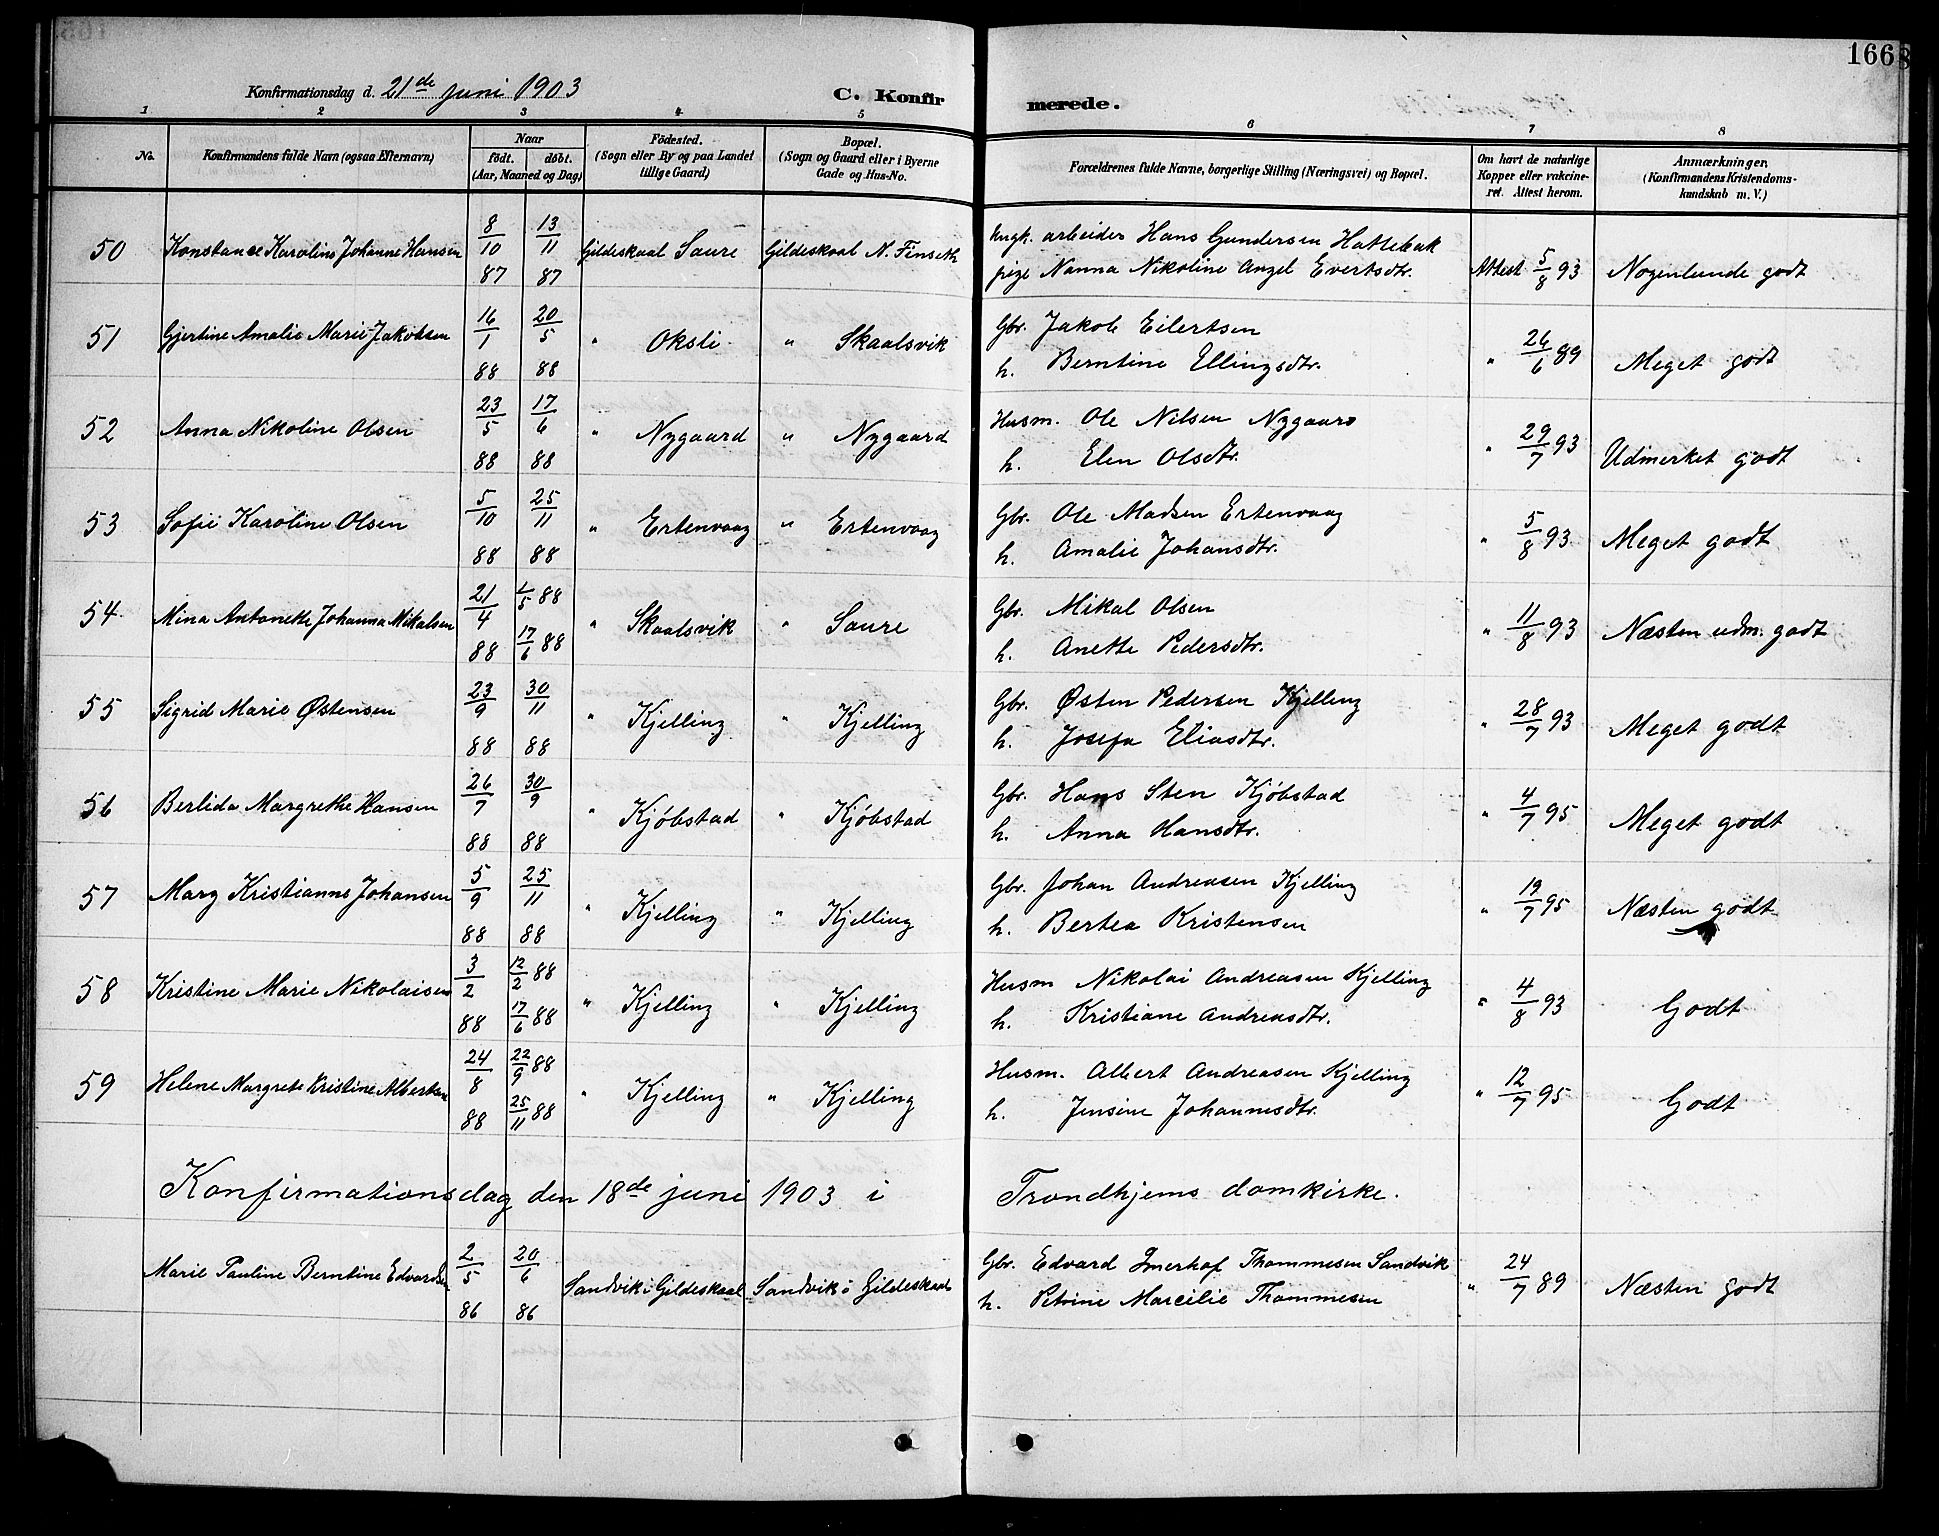 1668
Konfirmationsdag d. 21de juni 1903 C. Konfirmerede.
1 2 3 4 5 6 7 8
No. Konfirmandens fulde Navn (ogsaa Efternavn) Naar födt. döbt. (Aar, Maaned og Dag) Födested. (Sogn eller By og paa Landet tillige Gaard) Bopæl. (Sogn og Gaard eller i Byerne Gade og Hus-No. Forældrenes fulde Navne, borgerlige Stilling (Næringsvei) og Bopæl. Om havt de naturlige Kopper eller vakcineret. Attest herom. Anmærkninger, (Konfirmandens Kristendomskundskab m. V.)
50 Konstance Karoline Johanne Hansen 8/10 87 13/11 87 Gildeskaal Saure Gildeskaal N. Finseth Ungk. arbeider Hans Gundersen Hattebak Attest 5/8 93 Nogenlunde godt
pige Nanna Nikoline Angel Evertsdtr.
51 Gjertine Amalie Marie Jakobsen 16/1 88 20/5 88 " Oksli " Skaalsvik Gbr. Jakob Eilertsen " 26/6 89 Meget godt
h. Berntine Ellingsdtr.
52 Anna Nikoline Olsen 23/5 88 17/6 88 " Nygaard " Nygaard Husm. Ole Nilsen Nygaard " 29/7 93 Udmerket godt
h. Elen Olsdtr.
53 Sofie Karoline Olsen 5/10 88 25/11 88 " Ertenvaag " Ertenvaag Gbr. Ole Madsen Ertenvaag " 5/8 93 Meget godt
h. Amalie Johansdtr.
54 Mina Antonette Johanna Mikalsen 21/4 88 1/5 88 17/6 88 " Skaalsvik " Saure Gbr. Mikal Olsen " 11/8 93 Næsten udm. godt
h. Anette Pedersdtr.
55 Sigrid Marie Østensen 23/9 88 30/11 88 " Kjelling " Kjelling Gbr. Østen Pedersen Kjelling " 28/7 93 Meget godt
h. Josefa Eliasdtr.
56 Berlida Margrethe Hansen 26/7 88 30/9 88 " Kjöbstad " Kjöbstad Gbr. Hans Sten Kjöbstad " 4/7 95 Meget godt
h. Anna Hansdtr.
57 Mary Kristianne Johansen 5/9 88 25/11 88 " Kjelling " Kjelling Gbr. Johan Andreasen Kjelling " 19/7 95 Næsten godt
h. Bertea Kristensen
58 Kristine Marie Nikolaisen 3/2 88 12/2 88 17/6 88 " Kjelling " Kjelling Husm Nikolai Andreasen Kjelling " 4/8 93 Godt
h. Kristiane Andreasdtr.
59 Helene Margrete Kristine Albertsen 24/8 88 22/9 88 25/11 88 " Kjelling " Kjelling Husm. Albert Andreasen Kjelling " 12/7 95 Godt
h. Jensine Johannesdtr.
Konfirmationsdag den 18de juni 1903 i Trondhjems domkirke.
Marie Pauline Berntine Edvardsen 2/5 86 20/6 86 Sandvik i Gildeskaal Sandvik i Gildeskaal Gbr. Edvard Imerhof Thommesen Sandvik " 24/7 89 Næsten godt
h. Petrine Marcilie Thommesen